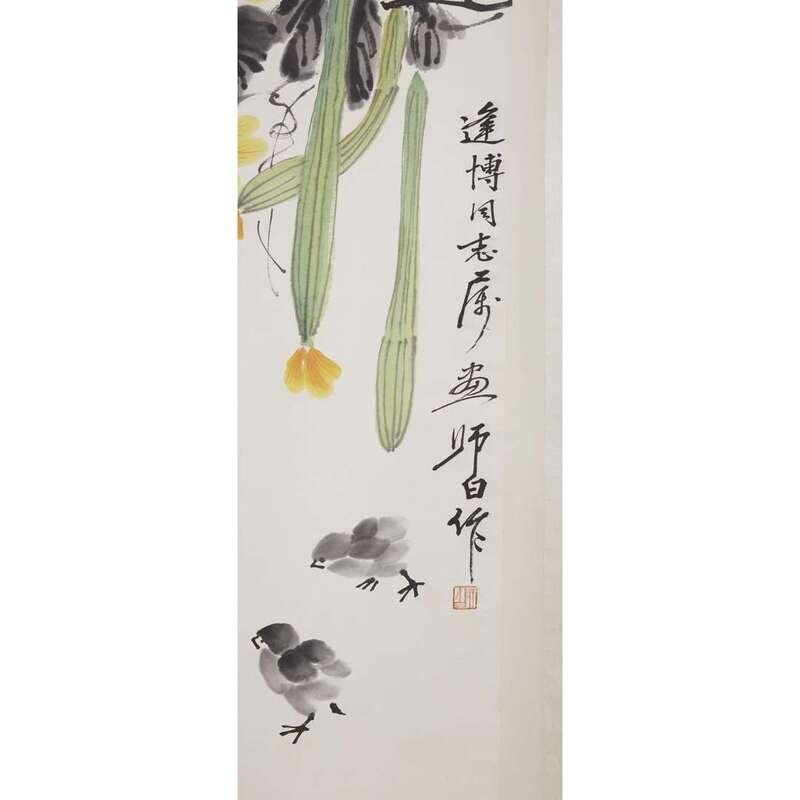 逢博同志属画师白作